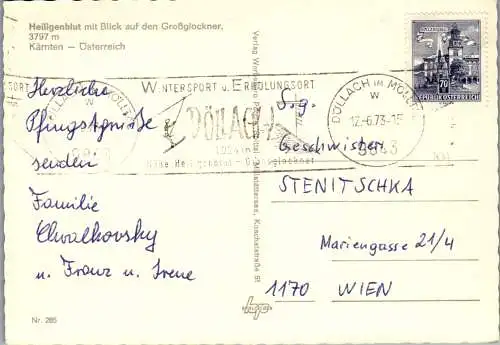 Heiligenblut mit Blick auf den Großglockner,
3797 m
Kärnten – Österreich
Herzliche
Pfingstgrüße
senden
Familie
Chwalkovsky
u. Franz u. Irene
Nr. 285
WINTERSPORT u. ERHOLUNGSORT
DÖLLACH
1024 m
Nähe Heiligenblut – Großglockner
DÖLLACH IM MÖLLTAL
W
9843
SALZBURG
70
REPUBLIK ÖSTERREICH
DÖLLACH IM MÖLLTAL
W
12.-6.73-15
9843
S.g.
Geschwister
STENITSCHKA
Mariengasse 21/4
1170 WIEN